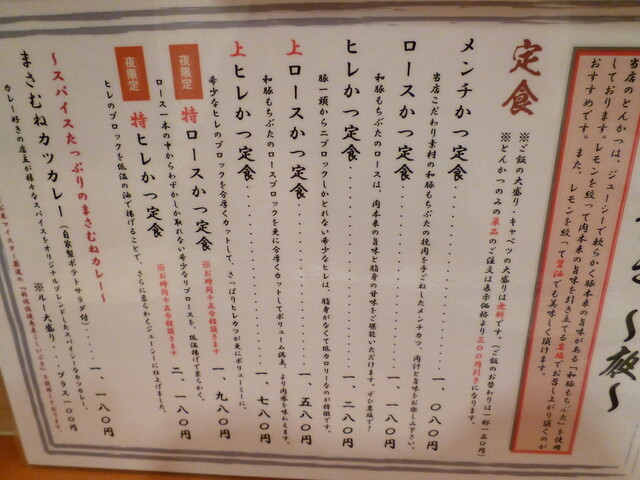 〜夜〜
当店のとんかつは、ジューシーで軟らかく豚本来の旨味がある「和豚もちぶた」を使用
しております。レモンを絞って肉本来の旨味を引き立てる岩塩でお召し上がり頂くのが
おすすめです。また、レモンを絞って醤油でも美味しく頂けます。
定食
※ご飯の大盛り・キャベツの大盛りは無料です（ご飯のお替わりは一杯一五〇円）
※とんかつのみの単品のご注文は表示価格より三〇〇円引きになります。
メンチかつ定食 一、〇八〇円
当店こだわり素材の和豚もちぶたの挽肉を手ごねしたメンチカツ、肉汁と旨味をお楽しみ下さい。
ロースかつ定食 一、一八〇円
和豚もちぶたのロースは、肉本来の旨味と脂身の甘味をご堪能いただけます。ぜひ岩塩で！
ヒレかつ定食 一、二八〇円
豚一頭から二ブロックしかとれない希少なヒレは、脂身がなくて低カロリーなのが特徴です。
上ロースかつ定食 一、五八〇円
和豚もちぶたのロースブロックを更に分厚くカットしてボリューム満点、より肉感を味わえます。
上ヒレかつ定食 一、七八〇円
希少なヒレのブロックを分厚くカットして、さっぱりヒレカツが更にボリューミーに。
夜限定 特ロースかつ定食 ※お時間十五分程頂きます 一、九八〇円
ロース一本の中からわずかしか取れない希少なリブロースを、低温揚げで柔らかく。
夜限定 特ヒレかつ定食 ※お時間十五分程頂きます 二、一八〇円
ヒレのブロックを低温の油で揚げることで、さらに柔らかくジューシーに仕上げました。
〜スパイスたっぷりのまさむねカレー〜
まさむねカツカレー（自家製ポテトサラダ付） 一、一八〇円
※ルー大盛り プラス一〇〇円
カレー好きの店主が様々なスパイスをオリジナルブレンドしたスパイシーなカツカレー。